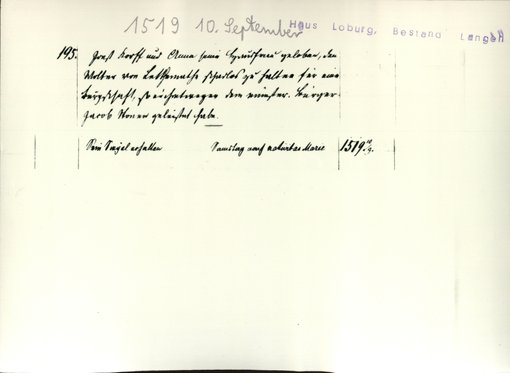 1519 10. September Haus Loburg, Bestand Langen
195. Ernst Korff und Anna seine Hausfrau geloben, den
Wolter von Lethmathe schadlos zu halten für eine
Bürgschaft, so er ihretwegen dem münster. Bürger
Jacob Stoner geleistet habe.
Sein Siegel erhalten Samstag nach nativitas Marie 1519 10/9.